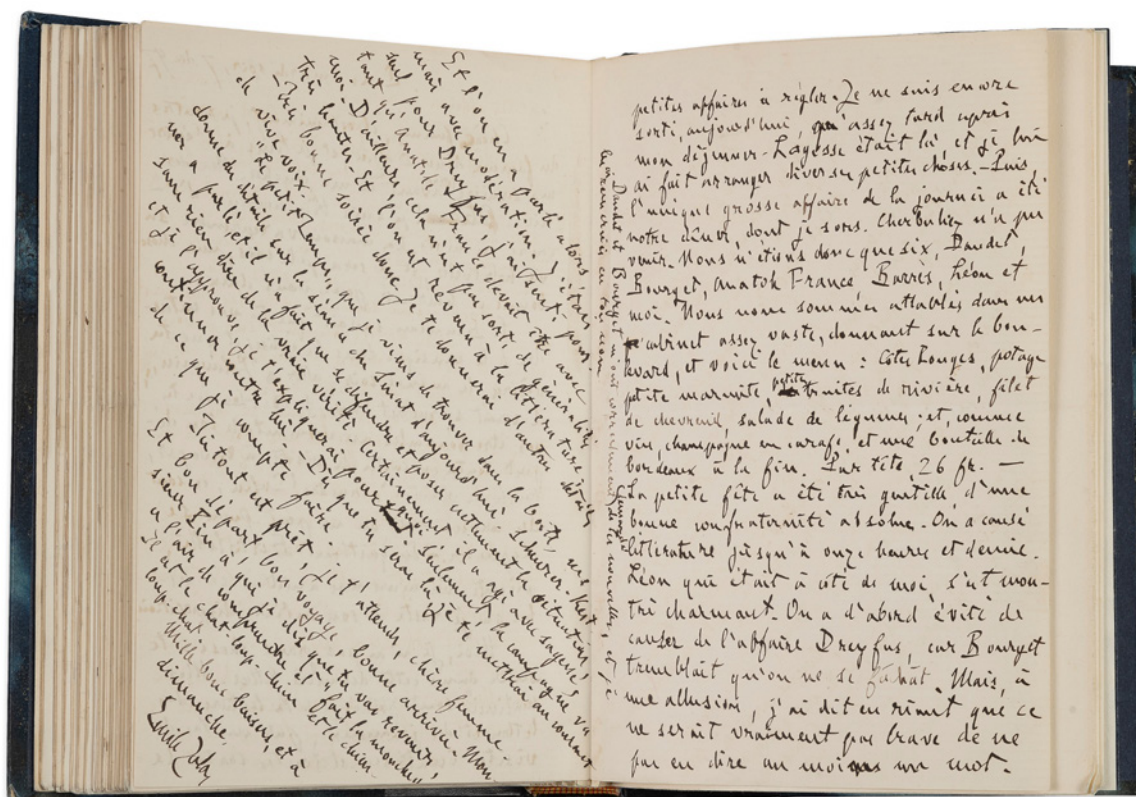 Et l'on en a parlé alors,
mais avec modération. J'étais
seul pour Dreyfus, j'ai senti pour-
tant qu'Anatole France devait être avec
moi. D'ailleurs, cela n'est pas sorti de généralités
très hautes. Et l'on est revenu à la littérature.
– Très bonne soirée donc. Je te donnerai d'autres détails
de vive voix.
"Le petit Temps, que je viens de trouver dans la boîte, me
donne des détails sur la séance du Sénat d'aujourd'hui. Scheurer-Kest-
ner a parlé, et il n'a fait que se défendre et poser nettement la situation,
sans rien dire de la vraie vérité. Certainement il a agi avec sagesse,
et je l'approuve, je t'expliquerai pourquoi. Seulement, la campagne va
continuer contre lui. – Dès que tu seras là, je te mettrai au courant
de ce que je compte faire.
tout est prêt, je t'attends, chère femme
Et bon départ, bon voyage, bonne arrivée. Mon-
sieur Pin, à qui je dis que tu vas revenir,
a l'air de comprendre et "fait la mouche".
Il est le chat-loup-chien et le chien-
loup-chat.
Mille bons baisers, et à
dimanche.
Emile Zola
Daudet et Bourget m'ont demandé de tes nouvelles, et je
les ai remerciés en ton nom
petites affaires à régler. Je ne suis encore
sorti, aujourd'hui, qu'assez tard après
mon déjeuner. Lagesse était là, et je lui
ai fait arranger diverses petites choses. – Puis,
l'unique grosse affaire de la journée a été
notre dîner, dont je sors. Cherbuliez n'a pu
venir. Nous n'étions donc que six, Daudet,
Bourget, Anatole France, Barrès, Léon et
moi. Nous nous sommes attablés dans un
cabinet assez vaste, donnant sur le bou-
levard, et voici le menu : Côtes rouges, potage
petite marmite, petites truites de rivière, filet
de chevreuil, salade de légumes ; et, comme
vin, champagne en carafe, et une bouteille de
bordeaux à la fin. Par tête 26 fr. —
La petite fête a été très gentille, d'une
bonne confraternité absolue. On a causé
littérature jusqu'à onze heures et demie.
Léon qui était à côté de moi, s'est mon-
tré charmant. On a d'abord évité de
causer de l'affaire Dreyfus, car Bourget
tremblait qu'on ne se fâchât. Mais, à
une allusion, j'ai dit en riant que ce
ne serait vraiment pas brave de ne
pas en dire au moins un mot.